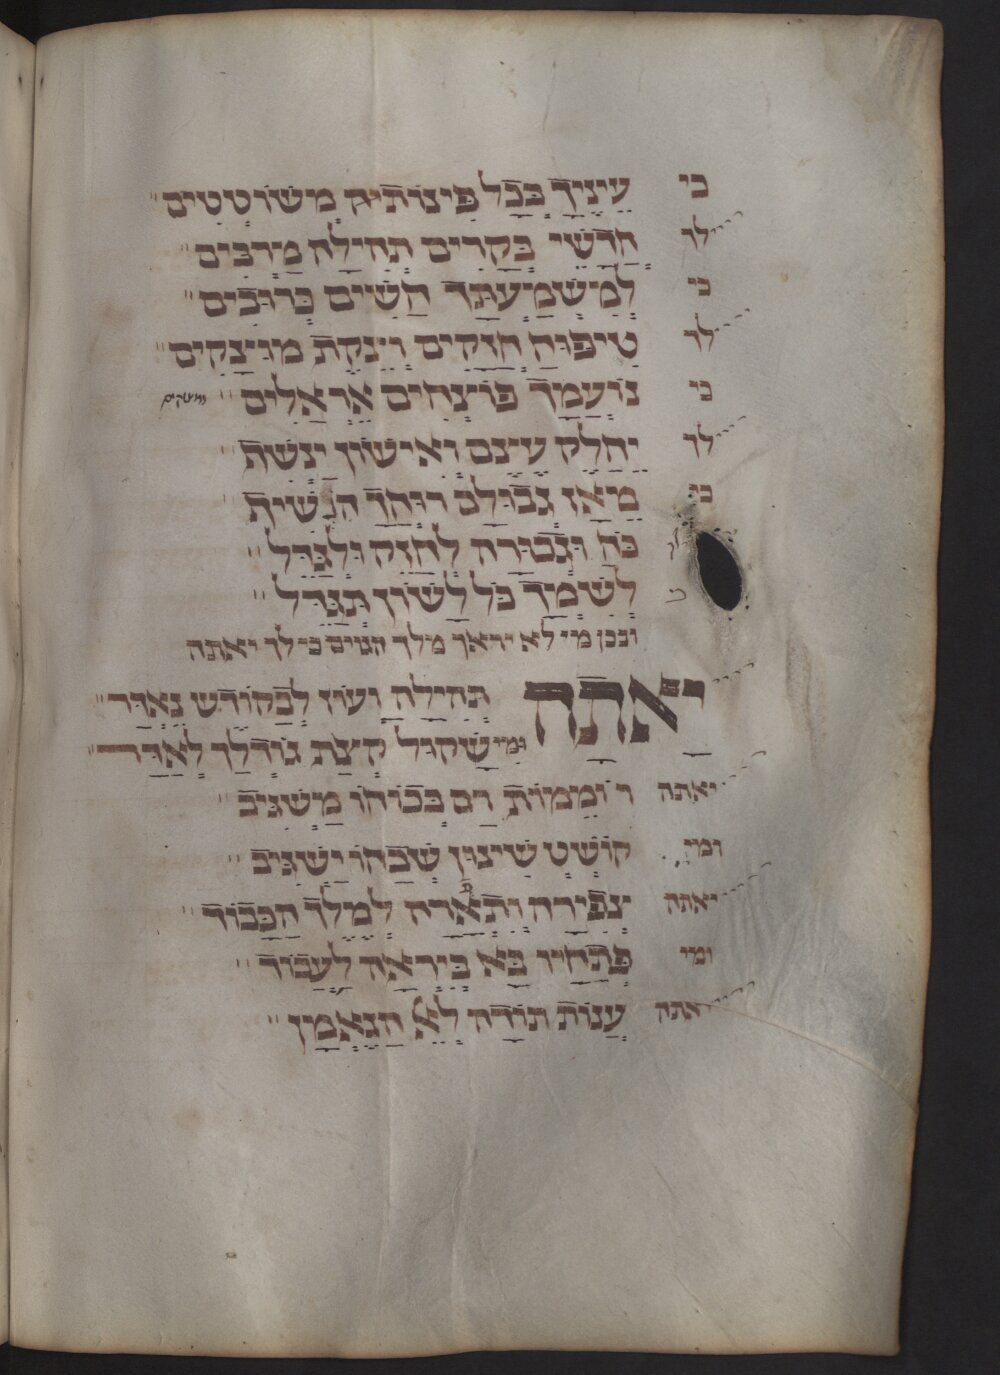 כי עֵינֶיךָ בְּכָל פִּינוֹתֶיהָ מְשׁוֹטְטִים
לך חַדְשֵׁי בְקָרִים תְּהִילָה מַרְבִּים
כי לְמִשְׁמַעְתָּךְ הֵשִׁים כְּרוּבִים
לך טִיפּוּחַ חֲזָקִים וִינִקַת מוּצָקִים
כי נוֹעֲמָךְ פּוֹצְחִים אֶרְאֵלִים
לך יֵחָלֵק עֶיצֶם וְאִישׁוֹן יִנָּשֵׁת
כי מֵאָז גְּבוּלַב רוּחֲךָ הִנְשִׁית
כֹּחַ וּגְבוּרָה לְחַזֵּק וּלְגַדֵּל
לְשִׁמְךָ כֹּל לָשׁוֹן תְּגַדֵּל
ובכן מי לא יראך מלך הגוים כי לך יאתה
יָאָתָה תְּהִילָה וָעוֹז לְבַקּוֹדֶשׁ נֶאְדָּר
וּמִי שָׁקוּל קְצָת גּוֹדְלָךְ לְאַדֵּר
יאתה רוֹמֵמוֹת רָם בְּכוֹחוֹ מַשְׂגִּיב
ומי קוֹשְׁטְ שִׁינּוּן שְׁבָחוֹ יַשְׂגִּיב
יאתה צְפִירָה וְתִפְאָרָה לְמֶלֶךְ הַכָּבוֹד
ומי פְּתָחָיו בָּא בְּיִרְאָה לַעֲבוֹד
יאתה עֲנוֹת תּוֹדָה לָאֵל הַנֶּאֱמָן